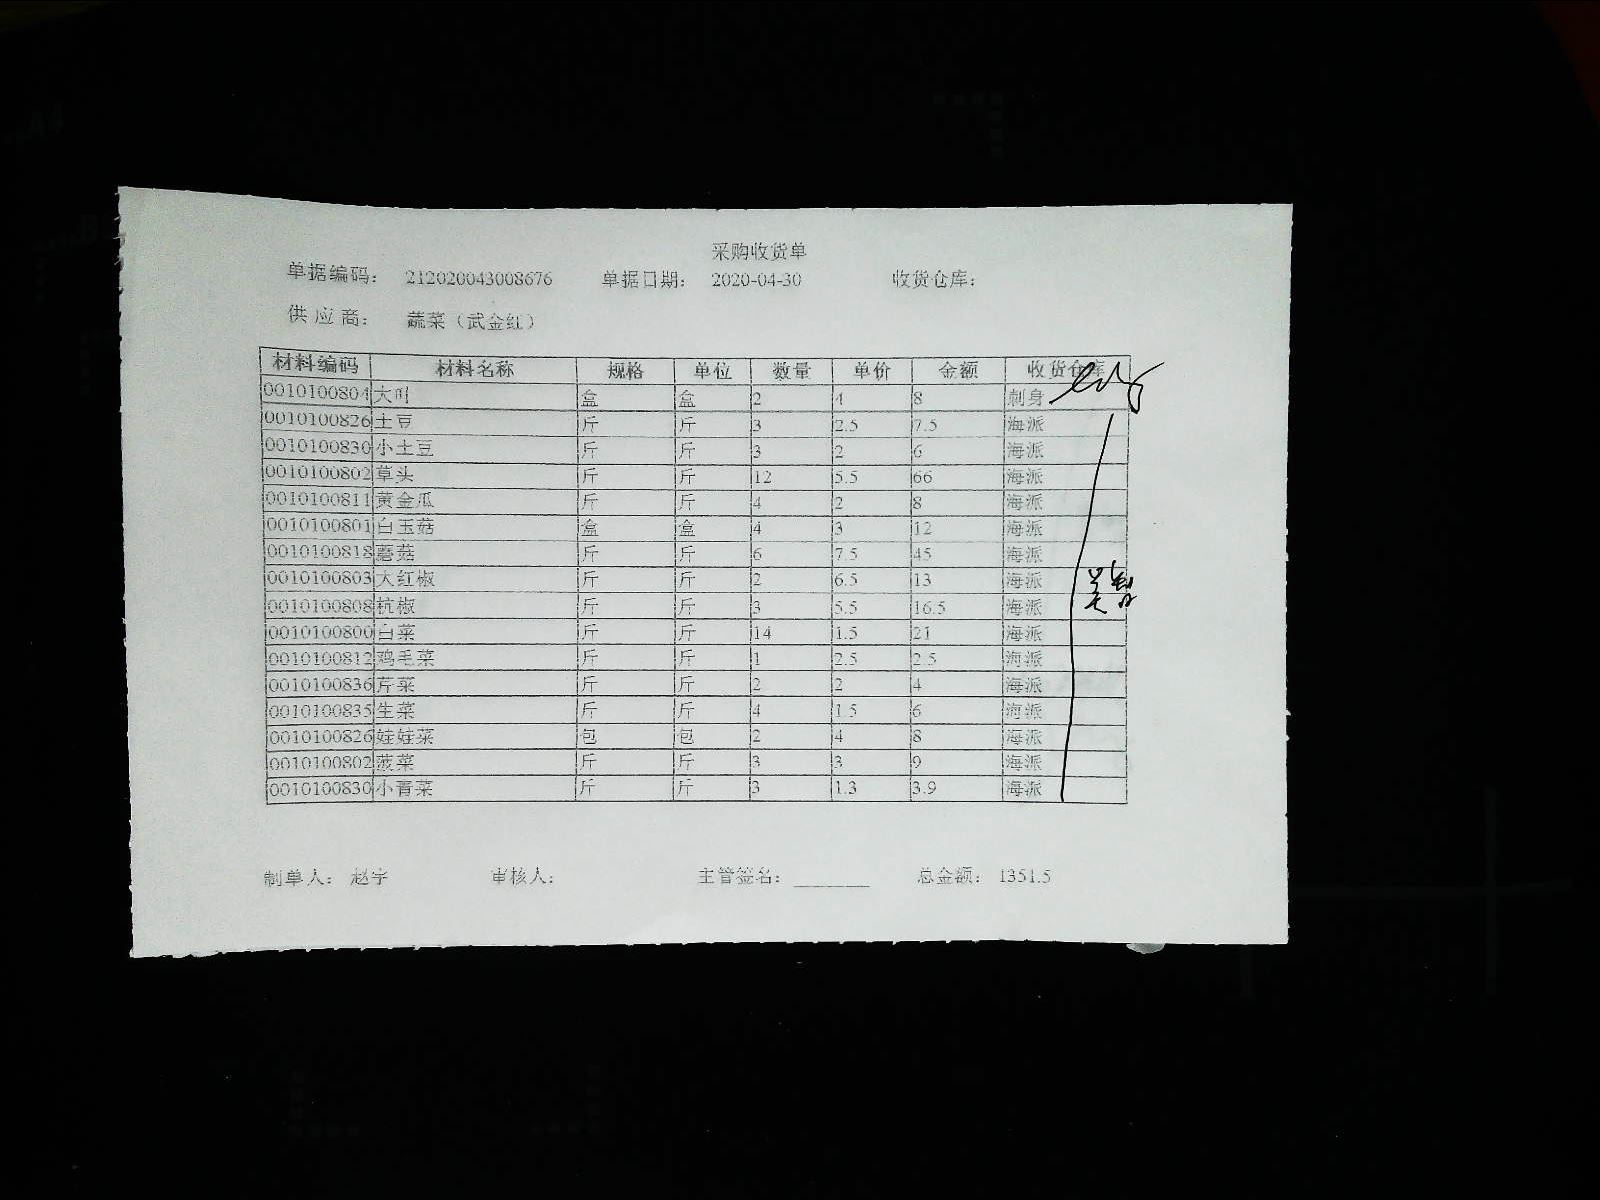 采购收货单
单据编码： 212020043008676 单据日期： 2020-04-30 收货仓库：
供 应 商： 蔬菜（武金红）
材料编码 材料名称 规格 单位 数量 单价 金额 收货仓库
0010100804 大叶 盒 盒 2 4 8 刺身
0010100826 土豆 斤 斤 3 2.5 7.5 海派
0010100830 小土豆 斤 斤 3 2 6 海派
0010100802 草头 斤 斤 12 5.5 66 海派
0010100811 黄金瓜 斤 斤 4 2 8 海派
0010100801 白玉菇 盒 盒 4 3 12 海派
0010100818 蘑菇 斤 斤 6 7.5 45 海派
0010100803 大红椒 斤 斤 2 6.5 13 海派
0010100808 杭椒 斤 斤 3 5.5 16.5 海派
0010100800 白菜 斤 斤 14 1.5 21 海派
0010100812 鸡毛菜 斤 斤 1 2.5 2.5 海派
0010100836 芹菜 斤 斤 2 2 4 海派
0010100835 生菜 斤 斤 4 1.5 6 海派
0010100826 娃娃菜 包 包 2 4 8 海派
0010100802 菠菜 斤 斤 3 3 9 海派
0010100830 小青菜 斤 斤 3 1.3 3.9 海派
制单人： 赵宇 审核人： 主管签名： ________ 总金额： 1351.5